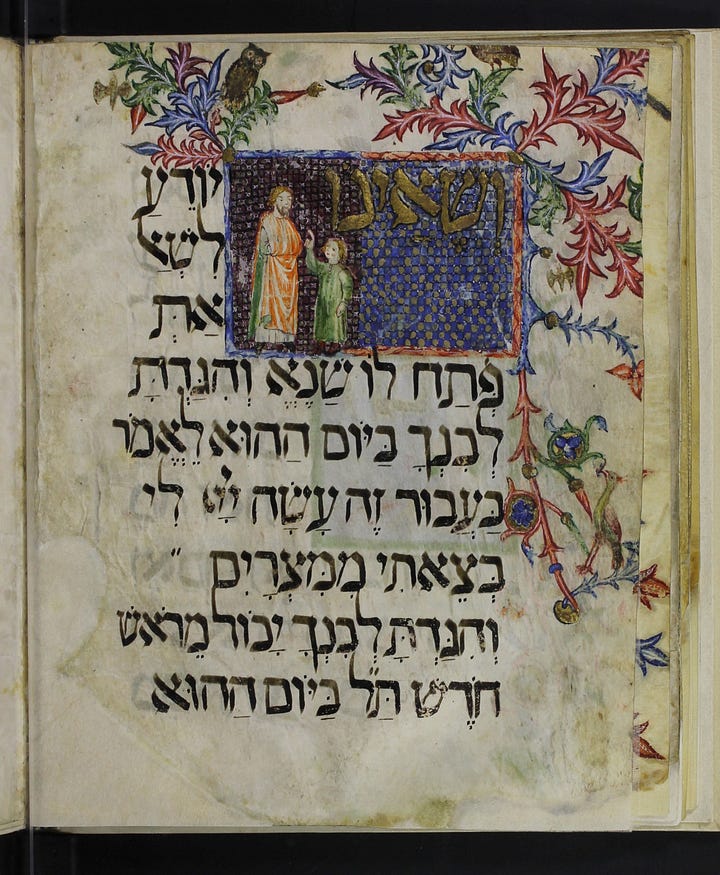 וְשֶׁאֵינוֹ
יוֹדֵעַ
לִשְׁאַל
אַתְּ
פְּתַח לוֹ שֶׁנֶּאֱ וְהִגַּדְתָּ
לְבִנְךָ בַּיּוֹם הַהוּא לֵאמֹר
בַּעֲבוּר זֶה עָשָׂה לִי
בְּצֵאתִי מִמִּצְרַיִם
וְהִגַּדְתָּ לְבִנְךָ יָכוֹל מֵרֹאשׁ
חֹדֶשׁ תַּל בַּיּוֹם הַהוּא